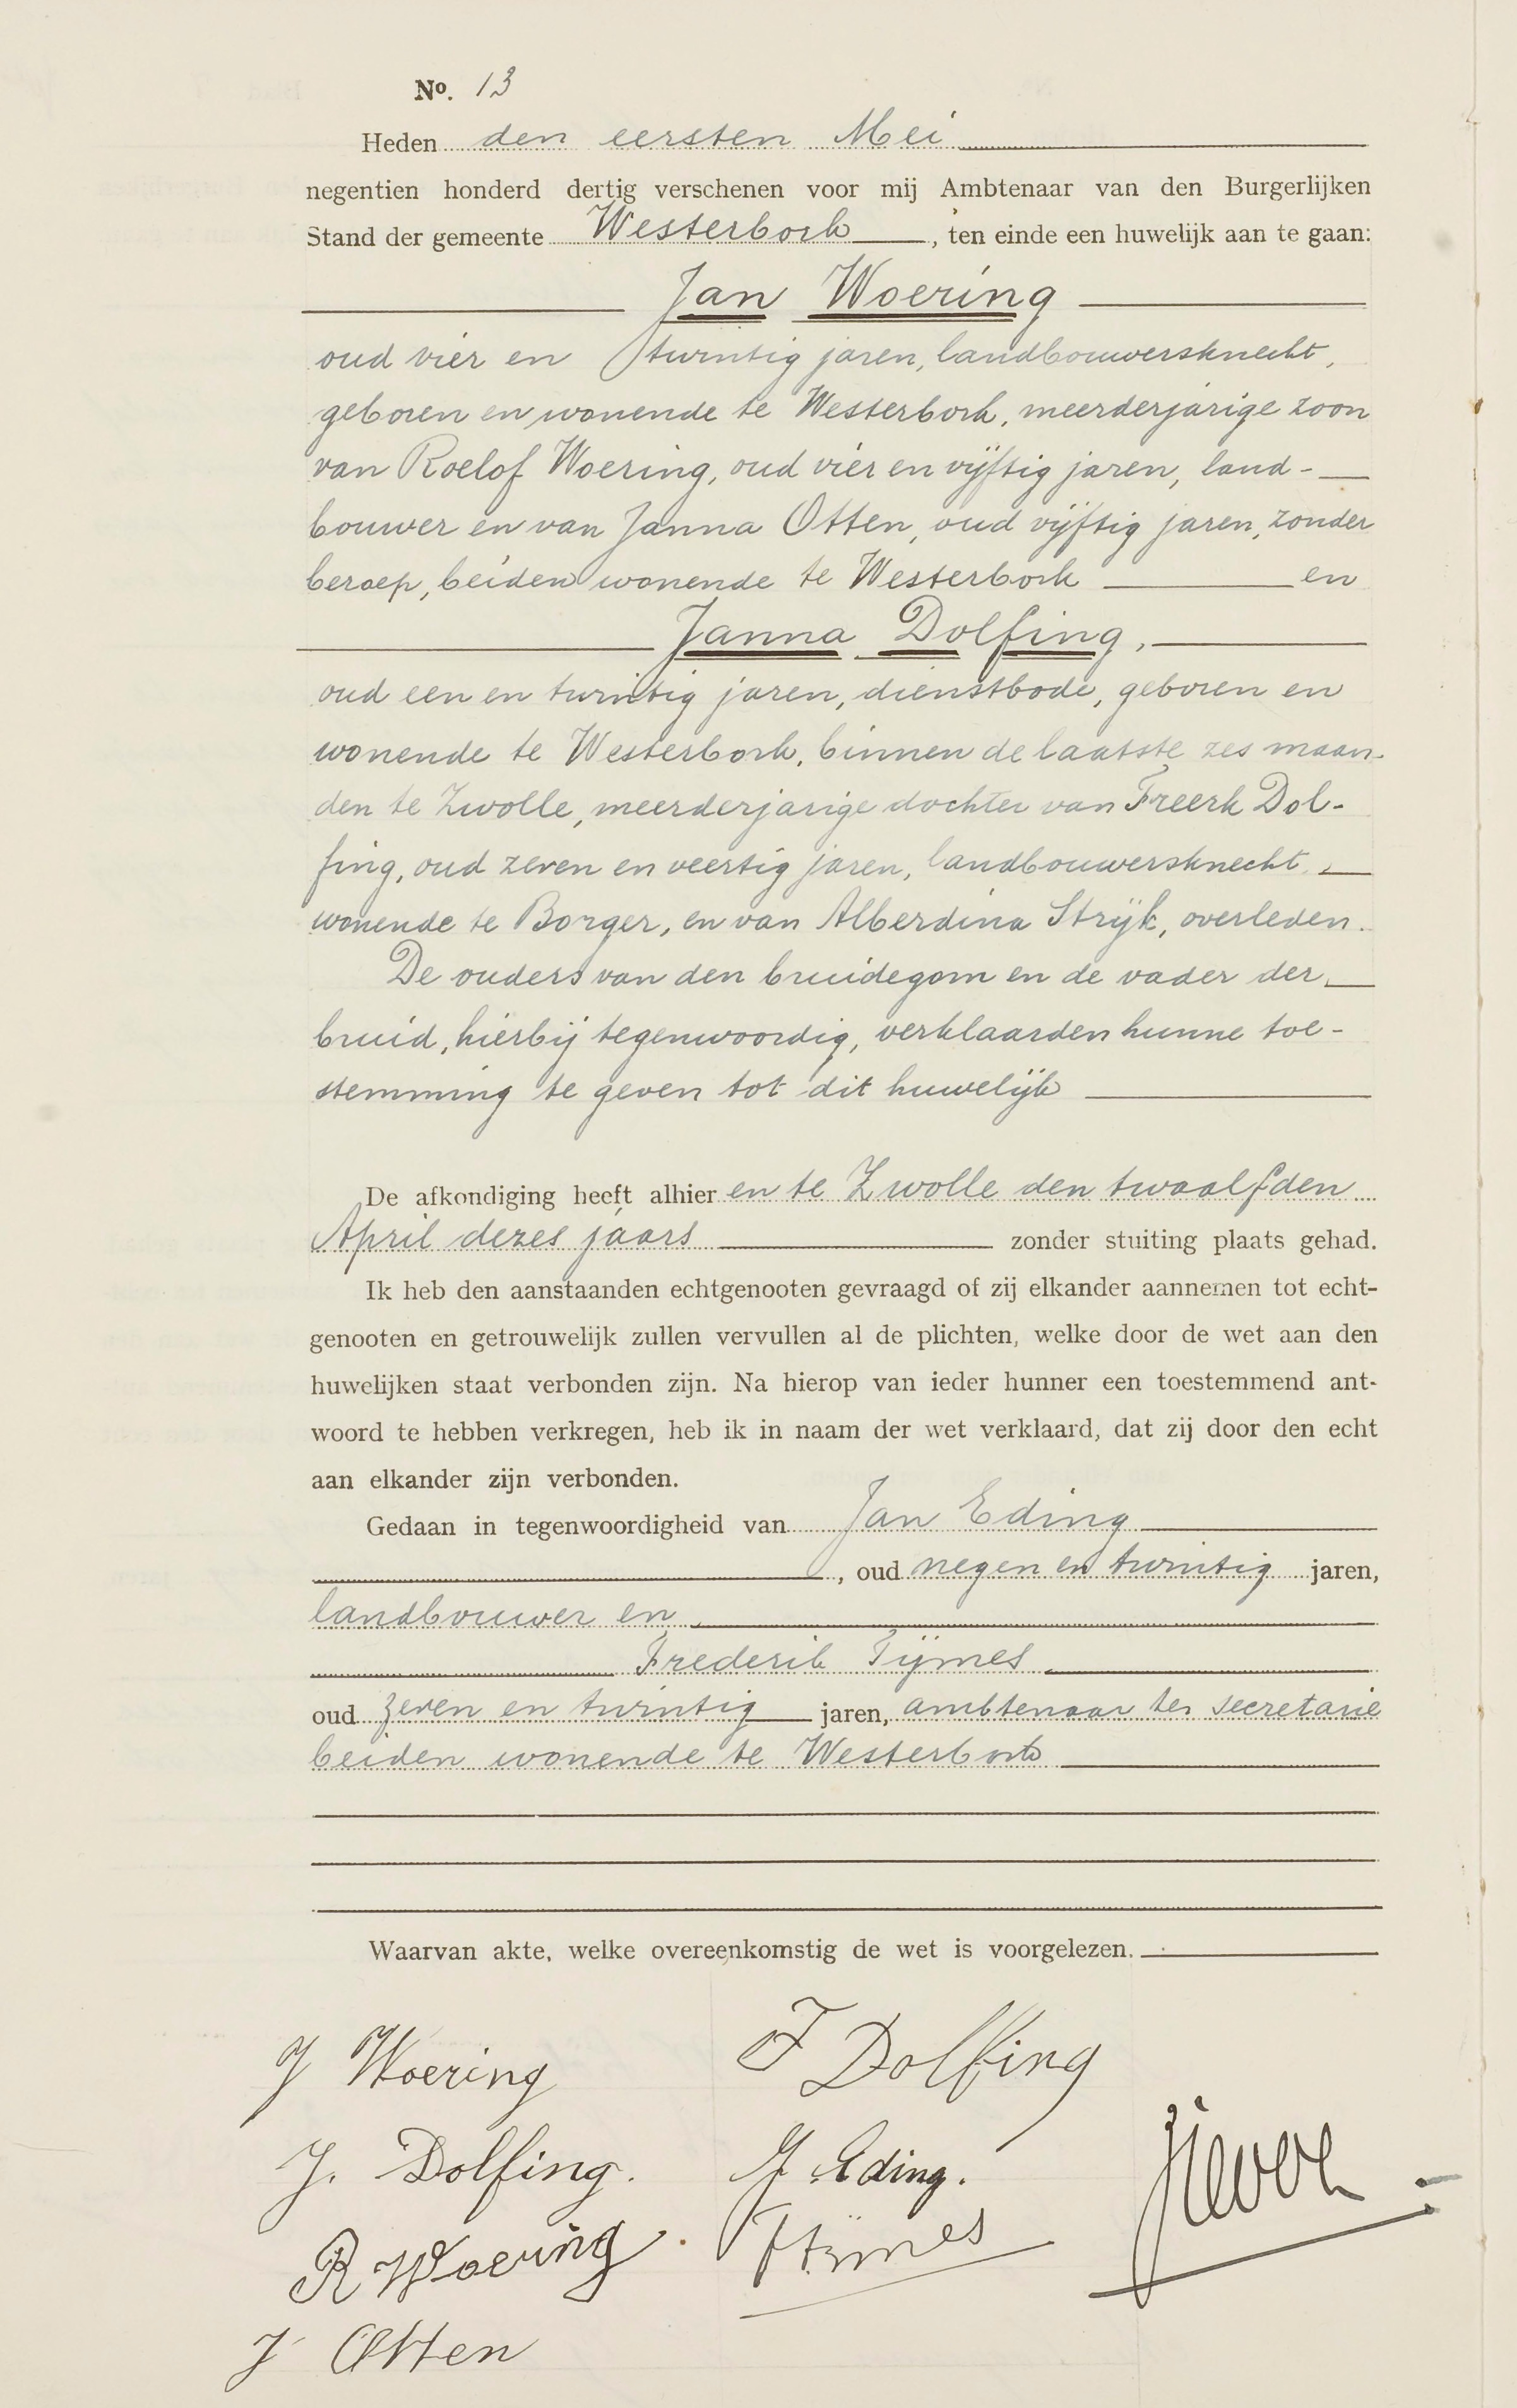 No. 13
Heden den eersten Mei
negentien honderd dertig verschenen voor mij Ambtenaar van den Burgerlijken
Stand der gemeente Westerbork, ten einde een huwelijk aan te gaan:
Jan Woering
oud vier en twintig jaren, landbouwersknecht,
geboren en wonende te Westerbork, meerderjarige zoon
van Roelof Woering, oud vier en vijftig jaren, land-
bouwer en van Janna Otten, oud vijftig jaren, zonder
beroep, beiden wonende te Westerbork en
Janna Dolfing,
oud een en twintig jaren, dienstbode, geboren en
wonende te Westerbork, binnen de laatste zes maan-
den te Zwolle, meerderjarige dochter van Freerk Dol-
fing, oud zeven en veertig jaren, landbouwersknecht,
wonende te Borger, en van Alberdina Strijk, overleden.
De ouders van den bruidegom en de vader der
bruid, hierbij tegenwoordig, verklaarden hunne toe-
stemming te geven tot dit huwelijk
De afkondiging heeft alhier en te Zwolle den twaalfden
April dezes jaars zonder stuiting plaats gehad.
Ik heb den aanstaanden echtgenooten gevraagd of zij elkander aannemen tot echt-
genooten en getrouwelijk zullen vervullen al de plichten, welke door de wet aan den
huwelijken staat verbonden zijn. Na hierop van ieder hunner een toestemmend ant-
woord te hebben verkregen, heb ik in naam der wet verklaard, dat zij door den echt
aan elkander zijn verbonden.
Gedaan in tegenwoordigheid van Jan Eding
, oud negen en twintig jaren,
landbouwer en
Frederik Tijmes
oud zeven en twintig jaren, ambtenaar ter secretarie
beiden wonende te Westerbork
Waarvan akte, welke overeenkomstig de wet is voorgelezen.
J Woering
F Dolfing
J. Dolfing.
J Eding.
R Woering
FTijmes
J Otten